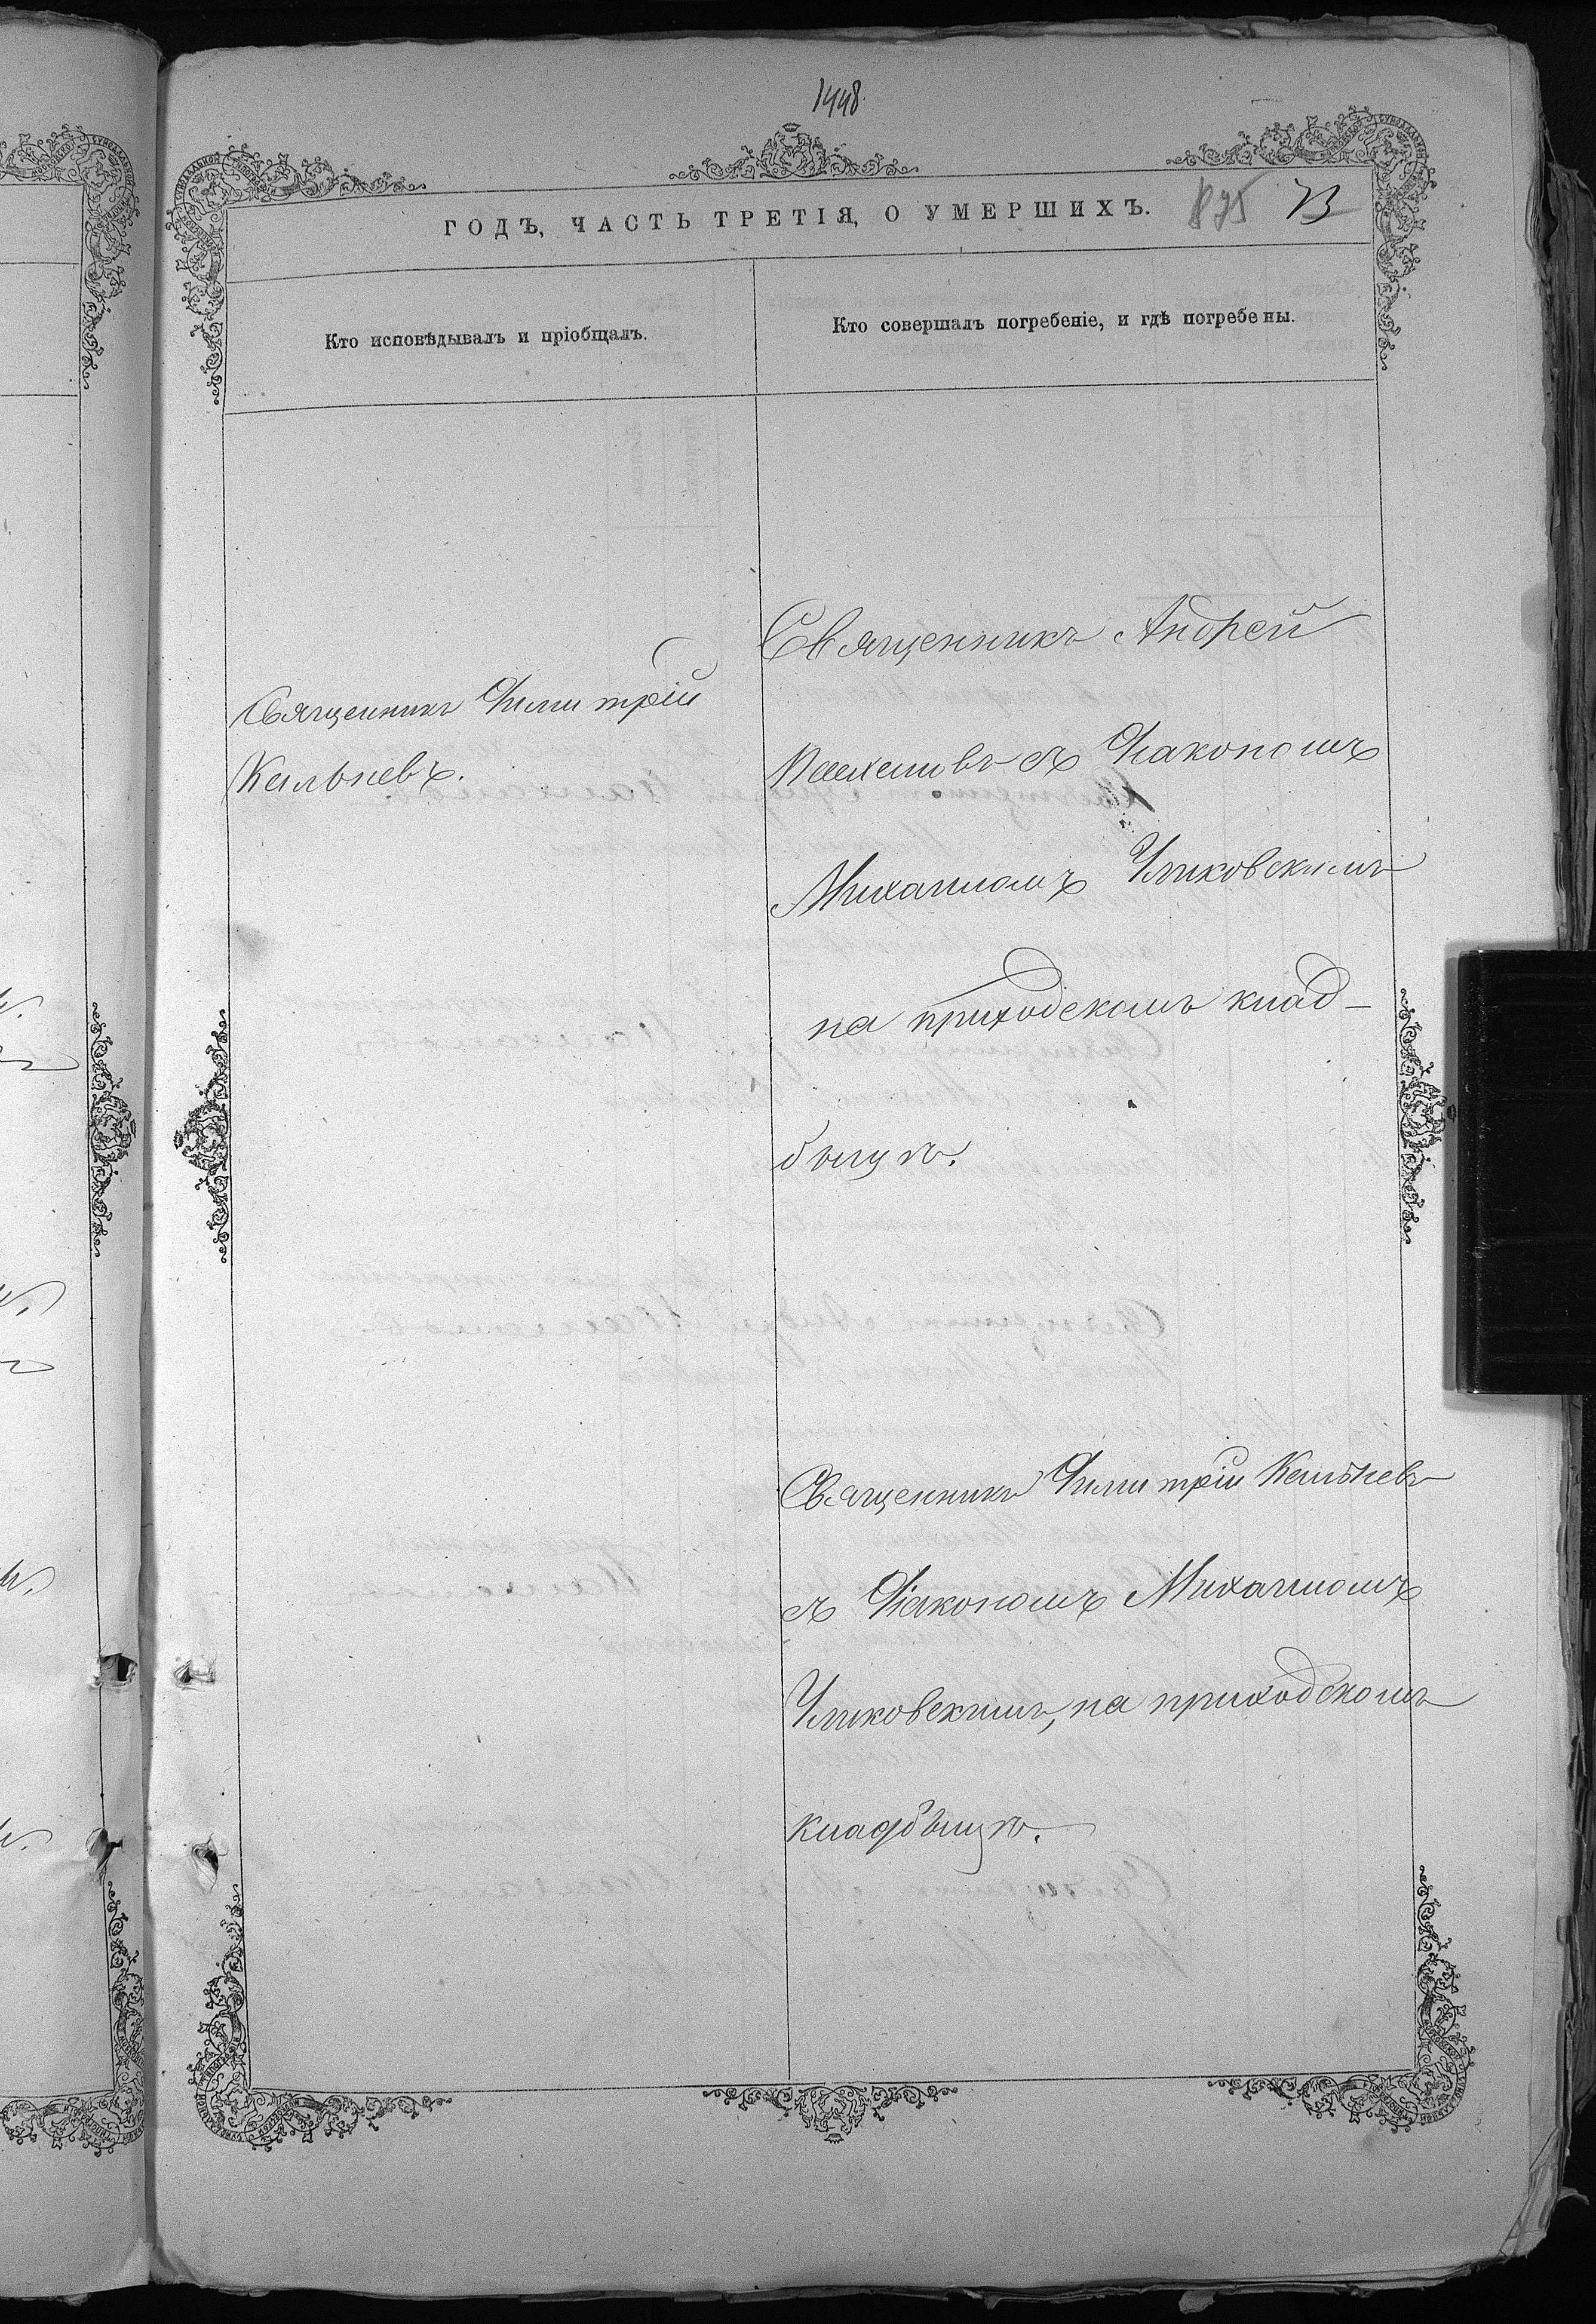 1448.
ГОДЪ, ЧАСТЬ ТРЕТІЯ, О УМЕРШИХЪ.
895 73
Кто исповѣдывалъ и пріобщалъ.
Кто совершалъ погребеніе, и гдѣ погребены.
Священникъ Димитрій
Кельневъ.
Священникъ Андрей
съ Діакономъ
Михаиломъ
на приходскомъ клад-
бищѣ.
Священникъ Димитрій Кельневъ
съ Діакономъ Михаиломъ
на приходскомъ
кладбищѣ.